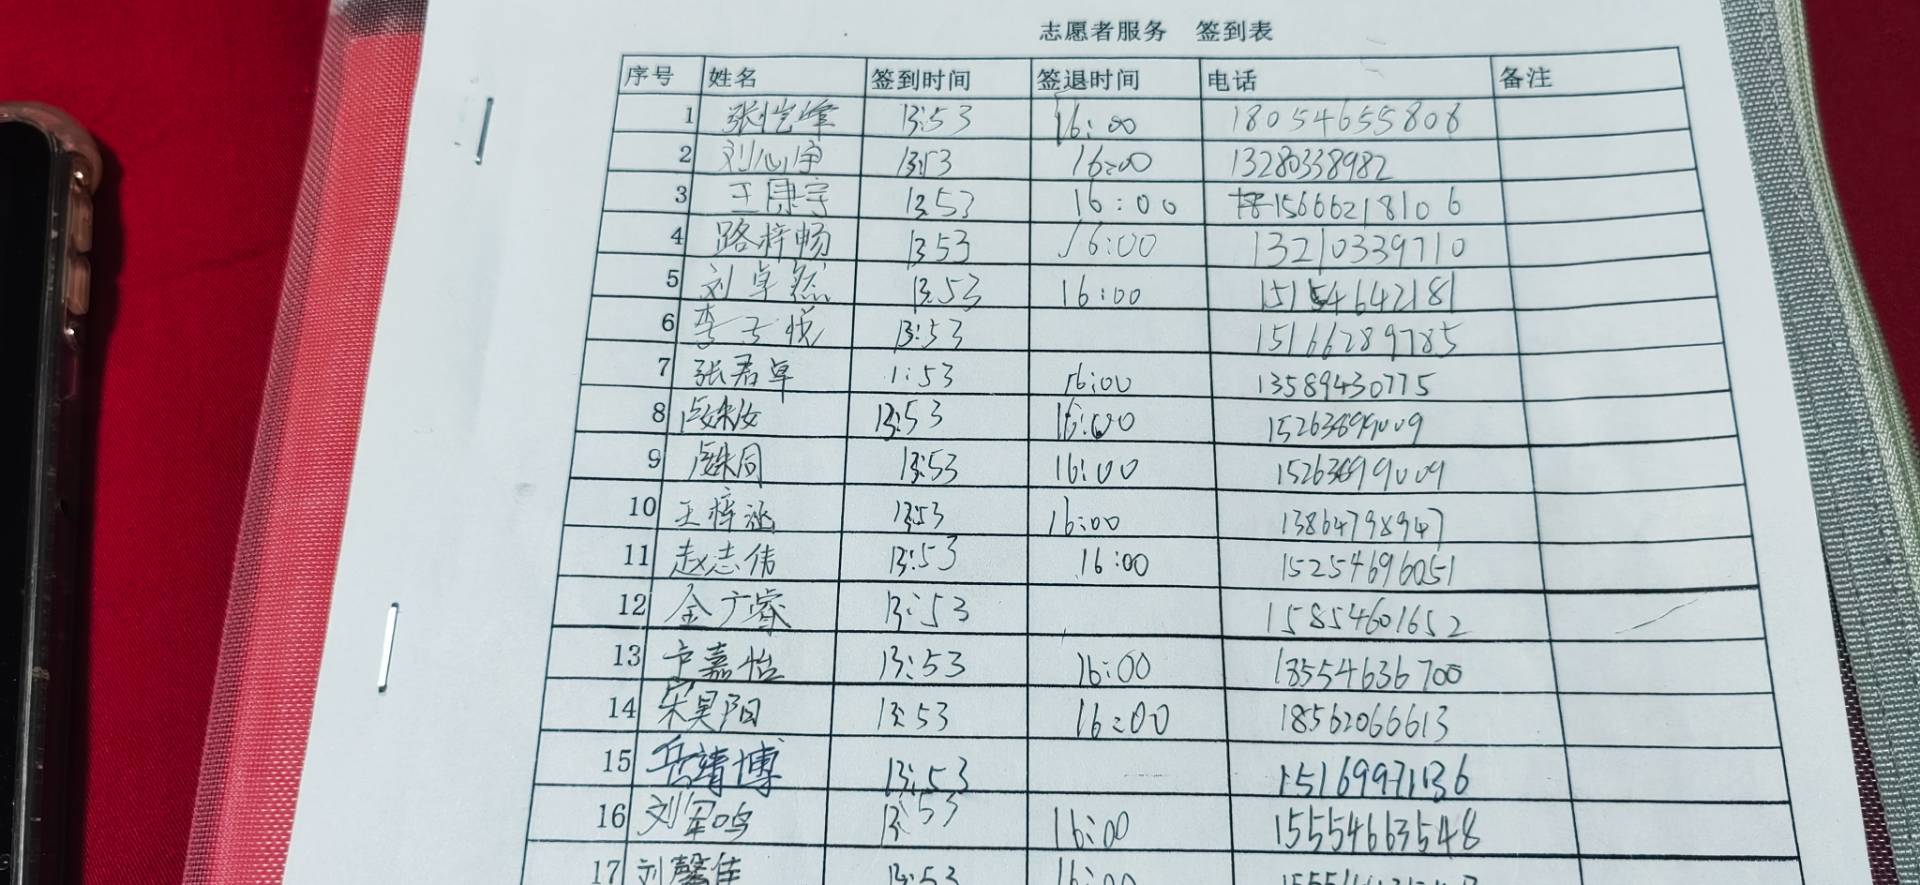 志愿者服务 签到表
序号 姓名 签到时间 签退时间 电话 备注
1 张恺峰 13:53 16:00 18054655808
2 刘心净 13:53 16:00 13280338982
3 王康宇 13:53 16:00 15666218106
4 路梓畅 13:53 16:00 13210339710
5 刘卓然 13:53 16:00 15154642181
6 李子悦 13:53 15166289785
7 张君卓 1:53 16:00 13589430775
8 13:53 16:00
9 13:53 16:00 15263899009
10 王梓涵 13:53 16:00 13864798947
11 赵志伟 13:53 16:00 15254696051
12 金广睿 13:53 15854601652
13 卢嘉怡 13:53 16:00 18554636700
14 宋昊阳 13:53 16:00 18562066613
15 岳靖博 13:53 15169971136
16 刘军鸣 13:53 16:00 15554663548
17 刘馨佳 13:53 16:00